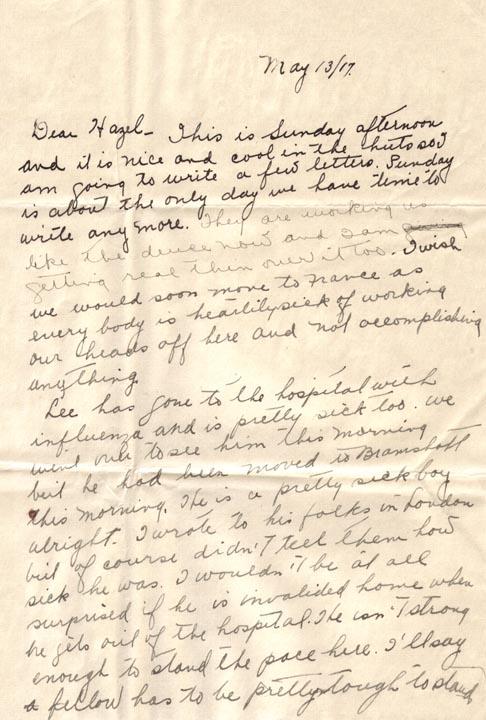 May 13/17.
Dear Hazel- This is Sunday afternoon
and it is nice and cool in the huts so I
am going to write a few letters. Sunday
is about the only day we have time to
write any more. They are working us
like the deuce now and I am
getting real thin over it too. I wish
we would soon move to France as
every body is heartily sick of working
our heads off here and not accomplishing
anything.
Lee has gone to the hospital with
influenza and is pretty sick too. We
went over to see him this morning
but he had been moved to Bramshott
this morning. He is a pretty sick boy
alright. I wrote to his folks in London
but of course didn't tell them how
sick he was. I wouldn't be at all
surprised if he is invalided home when
he gets out of the hospital. He isn't strong
enough to stand the pace here. I'll say
a fellow has to be pretty tough to stand